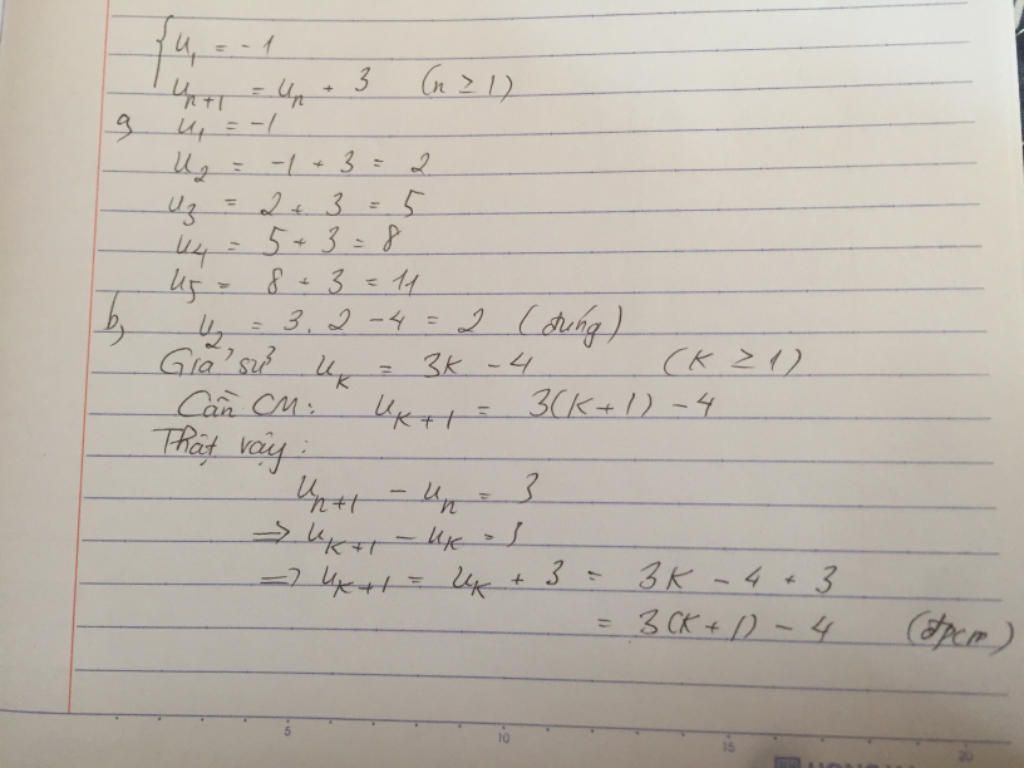 u₁ = -1
uₙ₊₁ = uₙ + 3 (n ≥ 1)
a, u₁ = -1
u₂ = -1 + 3 = 2
u₃ = 2 + 3 = 5
u₄ = 5 + 3 = 8
u₅ = 8 + 3 = 11
b, u₂ = 3.2 - 4 = 2 (đúng)
Giả sử uₖ = 3k - 4 (k ≥ 1)
Cần CM: uₖ₊₁ = 3(k+1) - 4
Thật vậy:
uₙ₊₁ - uₙ = 3
⇒ uₖ₊₁ - uₖ = 3
⇒ uₖ₊₁ = uₖ + 3 = 3k - 4 + 3
= 3(k+1) - 4 (đpcm)
5 10 15 20